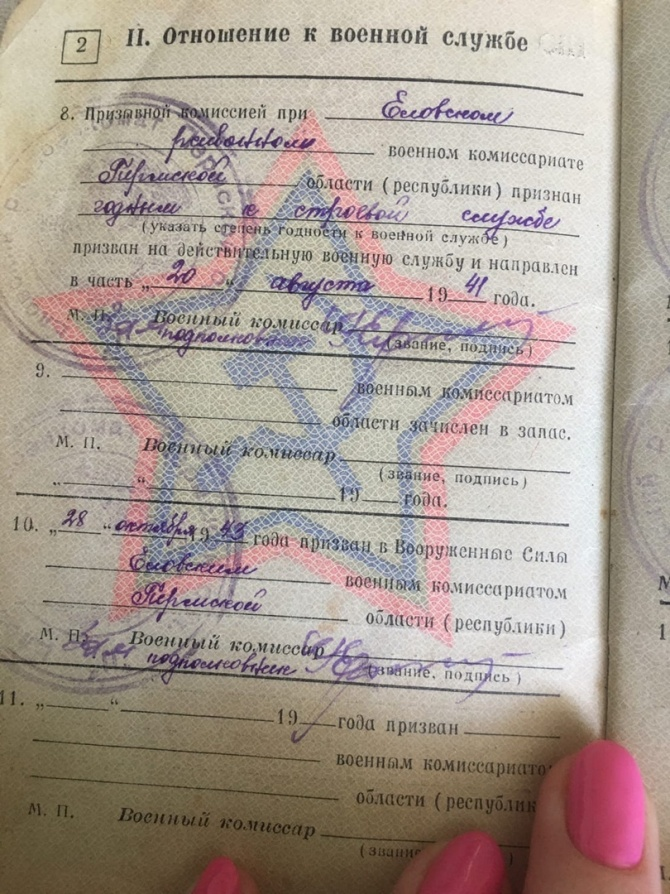 2
II. Отношение к военной службе
8. Призывной комиссией при Еловском
районном военном комиссариате
Пермской области (республики) признан
годным к строевой службе
(указать степень годности к военной службе)
призван на действительную военную службу и направлен
в часть „20“ августа 1941 года.
М. П. Военный комиссар
подполковник (звание, подпись)
9. военным комиссариатом
области зачислен в запас.
М. П. Военный комиссар
(звание, подпись)
„ “ 19 года.
10. „28“ октября 1943 года призван в Вооруженные Силы
Еловским военным комиссариатом
Пермской области (республики)
М. П. Военный комиссар
подполковник (звание, подпись)
11. „ “ 19 года призван
военным комиссариато
области (республик
М. П. Военный комиссар
(звание